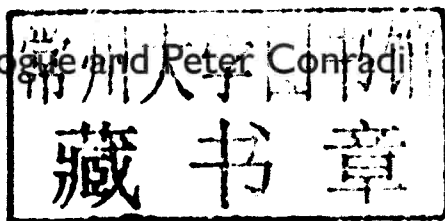 ogue and Peter Conradi
常州大学图书馆
藏书章